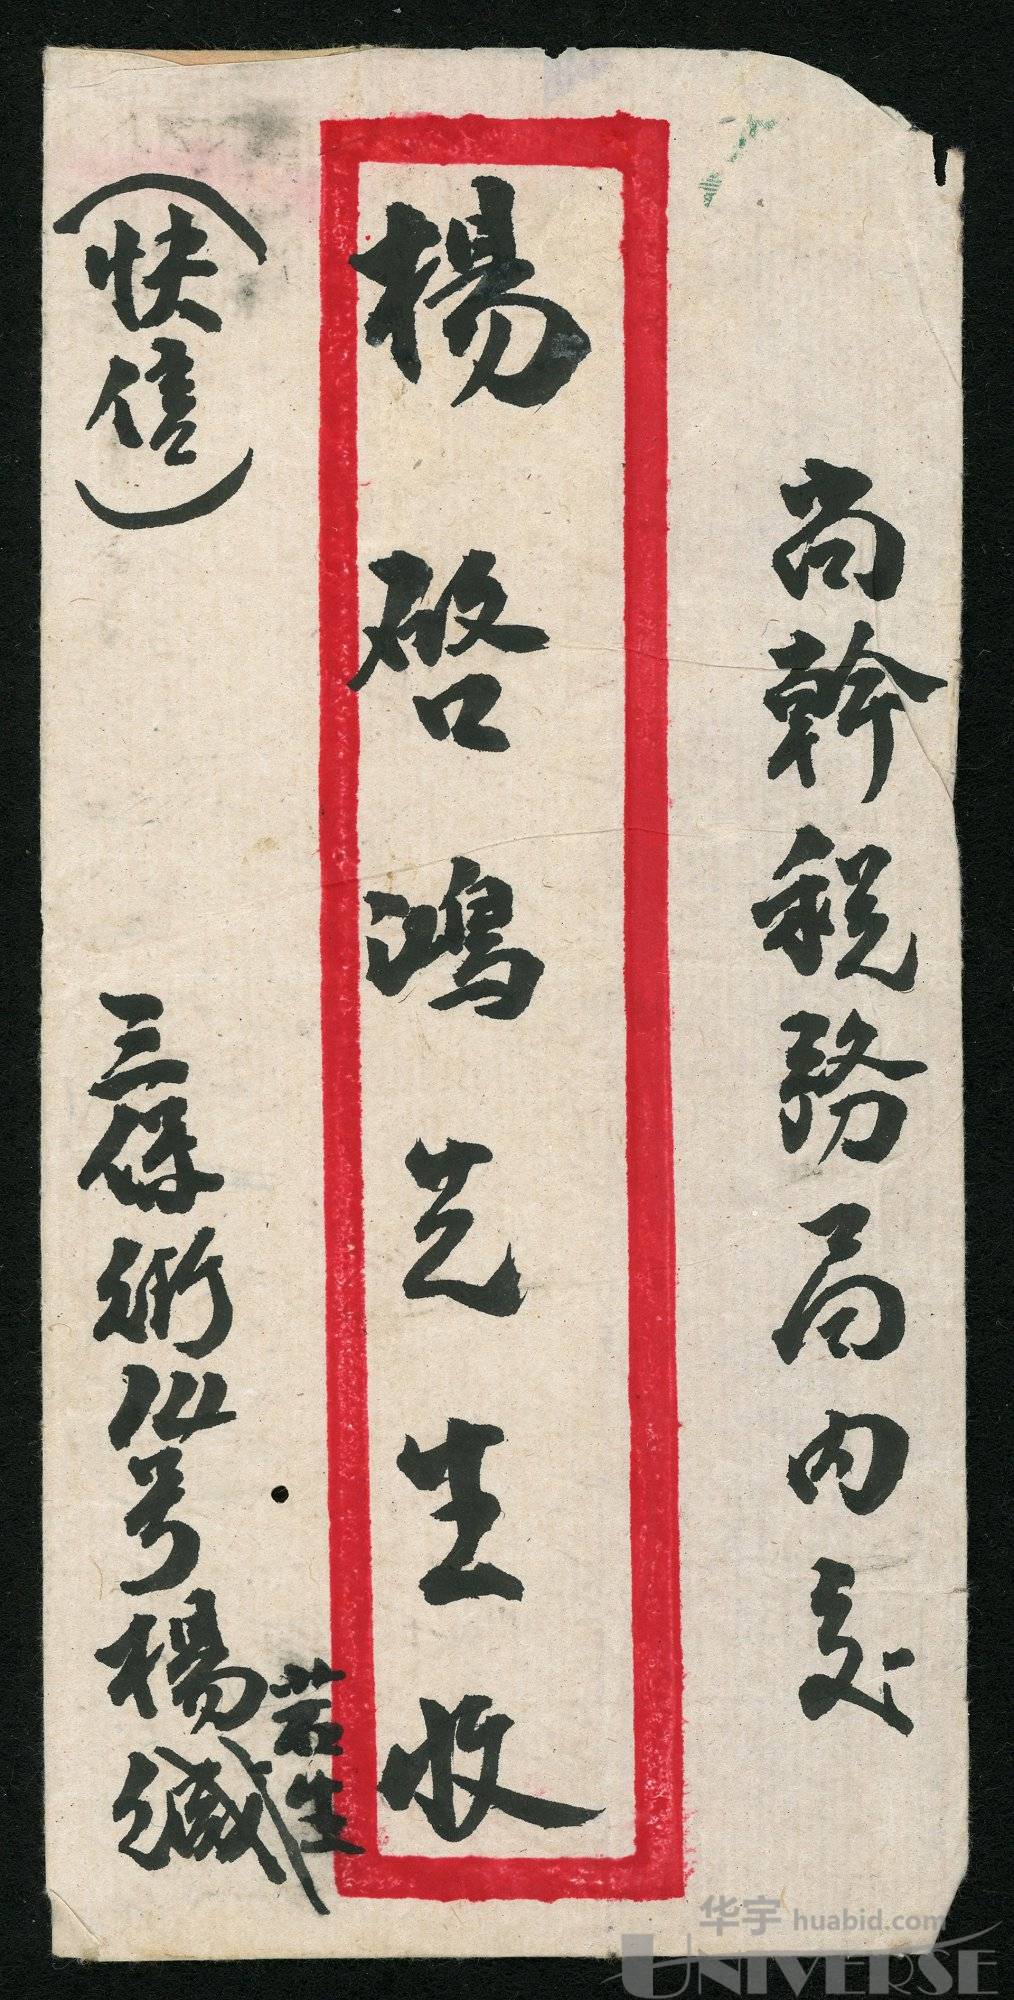 尚幹税務局内交
楊啓鴻先生收
(快信)
三保街148号楊緘
若生
华宇 huabid.com
UNIVERSE